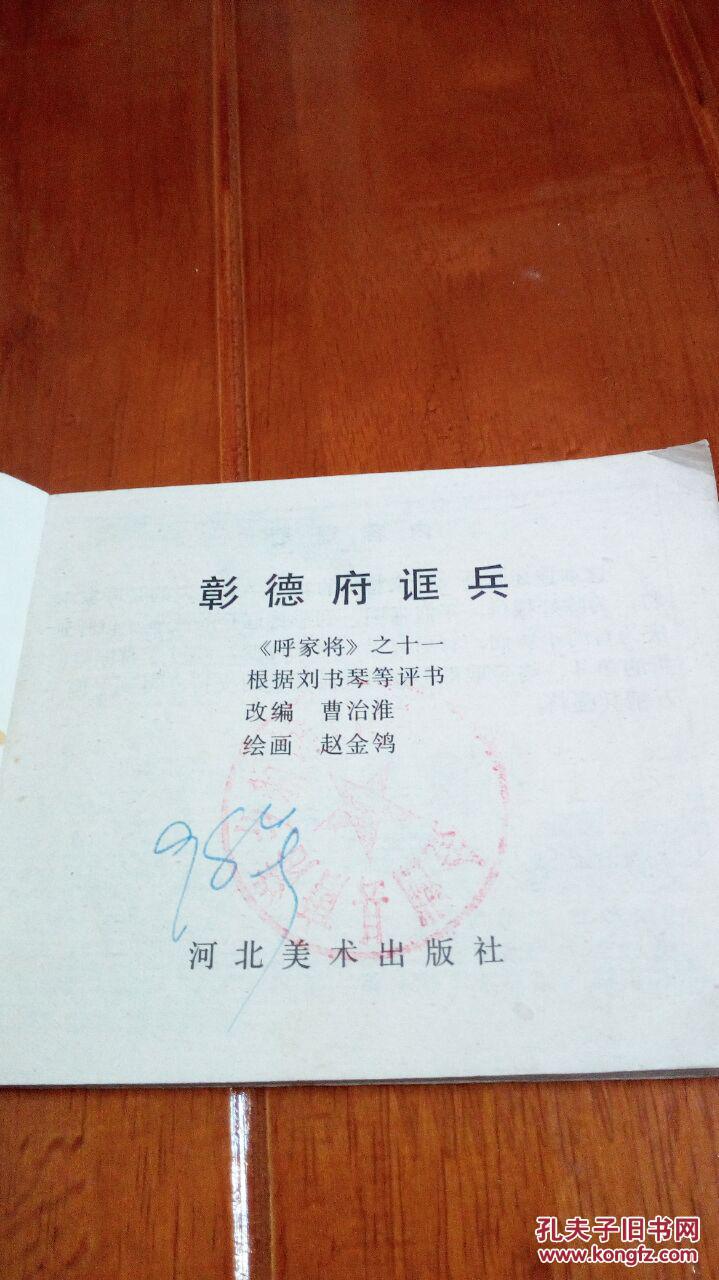 彰德府诓兵
《呼家将》之十一
根据刘书琴等评书
改编 曹治淮
绘画 赵金鸰
98号
河北美术出版社
孔夫子旧书网
www.kongfz.com